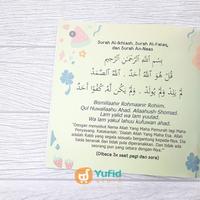 Surah Al-Ikhlash, Surah Al-Falaq,
dan Surah An-Naas
بِسْمِ اللَّهِ الرَّحْمَنِ الرَّحِيمِ
قُلْ هُوَ اللَّهُ أَحَدٌ . اللَّهُ الصَّمَدُ
لَمْ يَلِدْ وَلَمْ يُولَدْ . وَلَمْ يَكُن لَّهُ كُفُوًا أَحَدٌ
Bismillaahir Rohmaanir Rohiim.
Qul Huwallaahu Ahad. Allaahush-Shomad.
Lam yalid wa lam yuulad.
Wa lam yakul lahuu kufuwan ahad.
"Dengan menyebut Nama Allah Yang Maha Pemurah lagi Maha
Penyayang. Katakanlah: 'Dialah Allah Yang Maha Esa. Allah
adalah Rabb yang segala sesuatu bergantung kepada-Nya. Dia
tiada beranak dan tidak pula diperanakkan. Dan tidak ada
seorang pun yang setara dengan-Nya.'"
(Dibaca 3x saat pagi dan sore)
Yufid